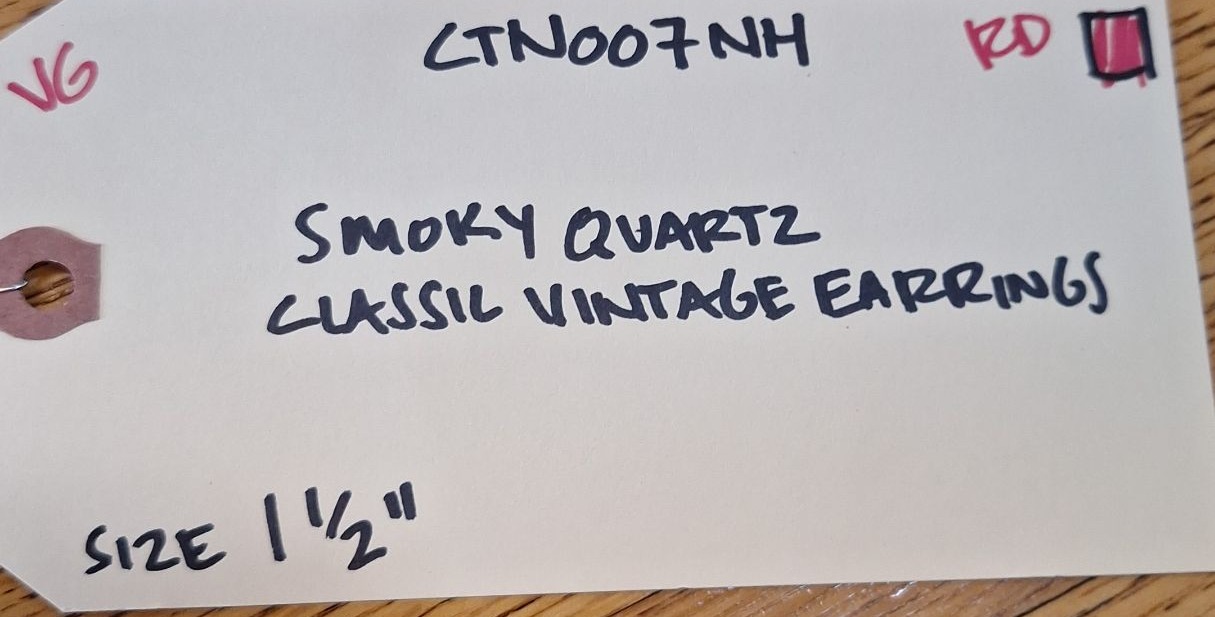 VG CTN007NH RD
SMOKY QUARTZ
CLASSIC VINTAGE EARRINGS
SIZE 1 1/2"